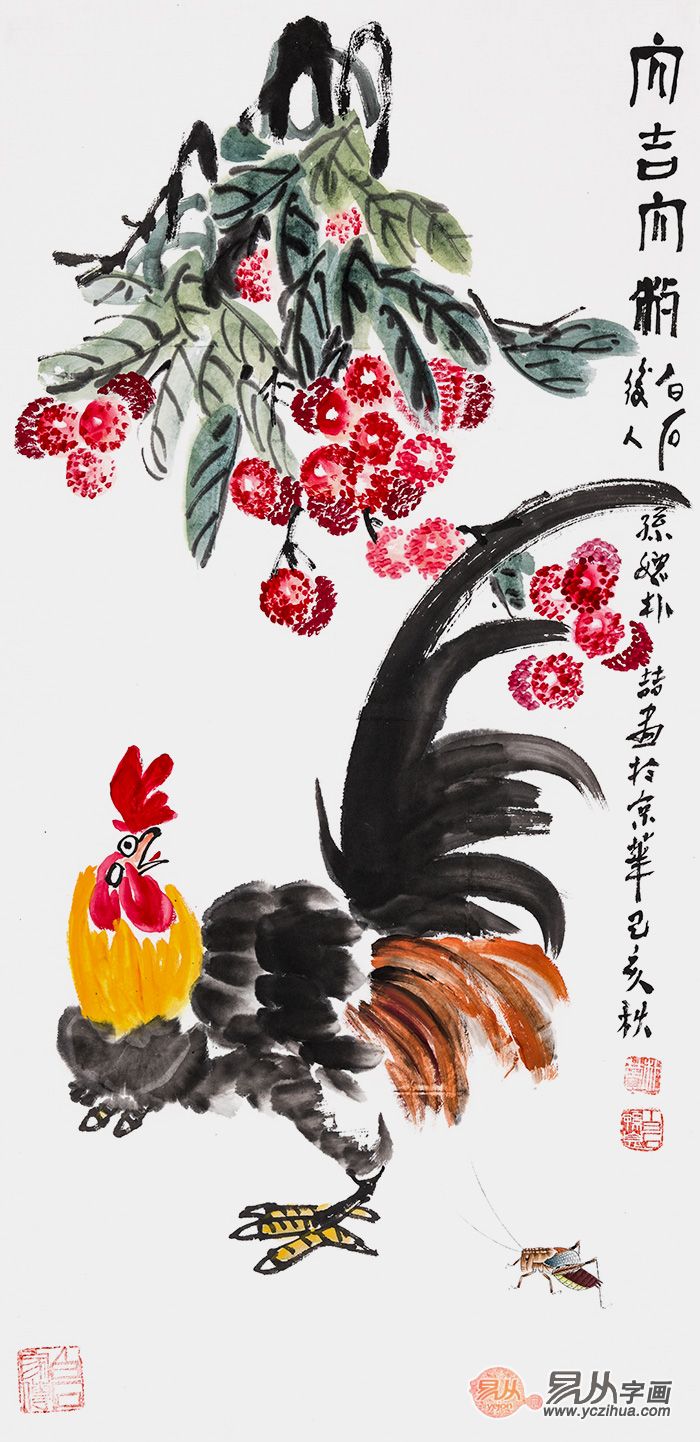 大吉大利
白石
後人
孫媳朴喆畫於京華己亥秋
易从
易从字画
www.yczihua.com